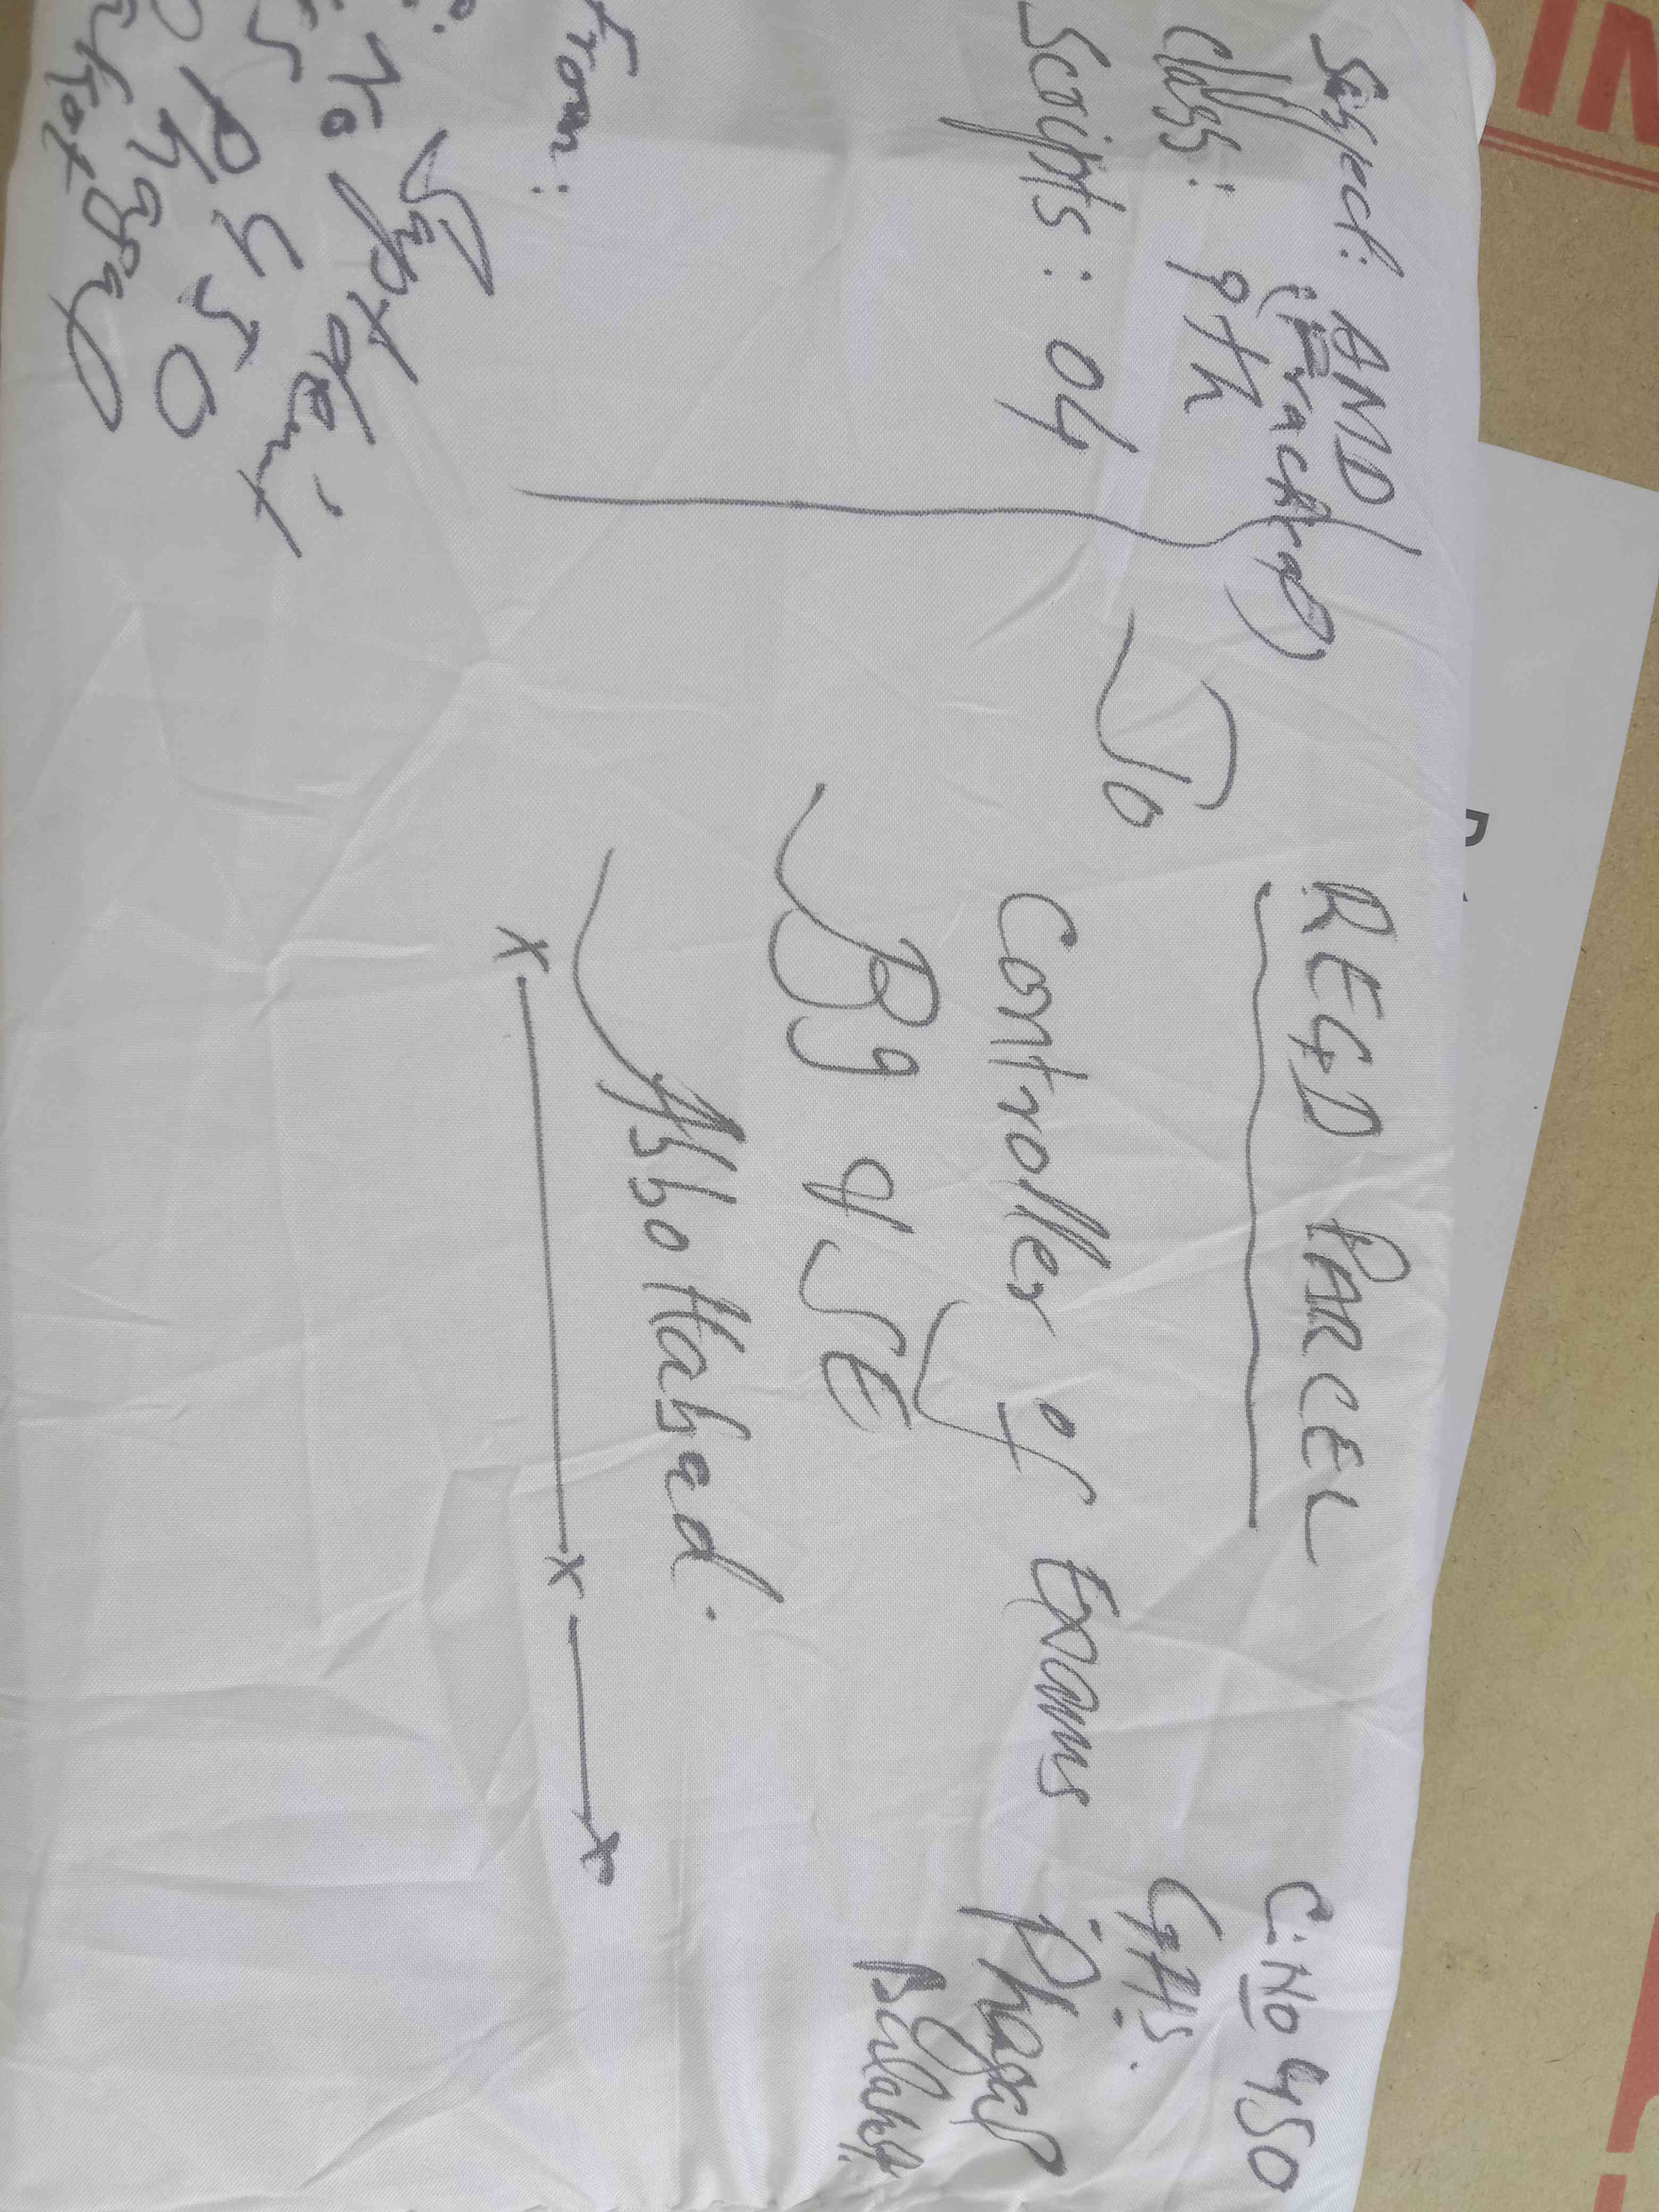 Subject: AND
(Practical)
Class: 9th
Scripts: 04
REGD PARCEL
C.No 450
GHS.
Phagal
Balakot
To
Controller of Exams
BISE
Abbottabad.
From:
Suptdent
No 450
Phagal